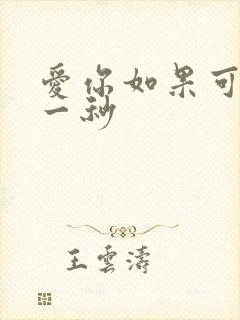 愛你如果可
一秒
王雲濤